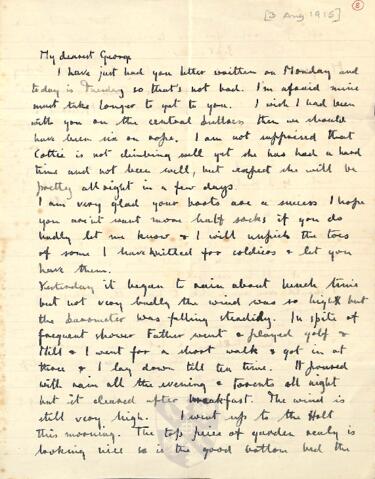 8
[3 Aug 1915]
My dearest George
I have just had you letter written on Monday and
today is Tuesday so that's not bad. I'm afraid mine
must take longer to get to you. I wish I had been
with you on the central buttress then we should
have been six on rope. I am not suppraised that
Cottie is not climbing well yet she has had a hard
time and not been well, but expect she will be
pretty allright in a few days.
I am very glad your boots are a success I hope
you arn't want more half socks if you do
badly let me know & I will unpick the toes
of some I have knitted for soldiers & let you
have them.
Yesterday it began to rain about lunch time
but not very badly the wind was so high but
the barometer was falling steadily. In spite of
frequent shower Father went & played golf &
Mill & I went for a short walk & got in at
three & I lay down till tea time. It poured
with rain all the evening & torents all night
but it cleared after breakfast. The wind is
still very high. I went up to the Holt
this morning. The top piece of garden realy is
looking nice so is the good bottom bed the